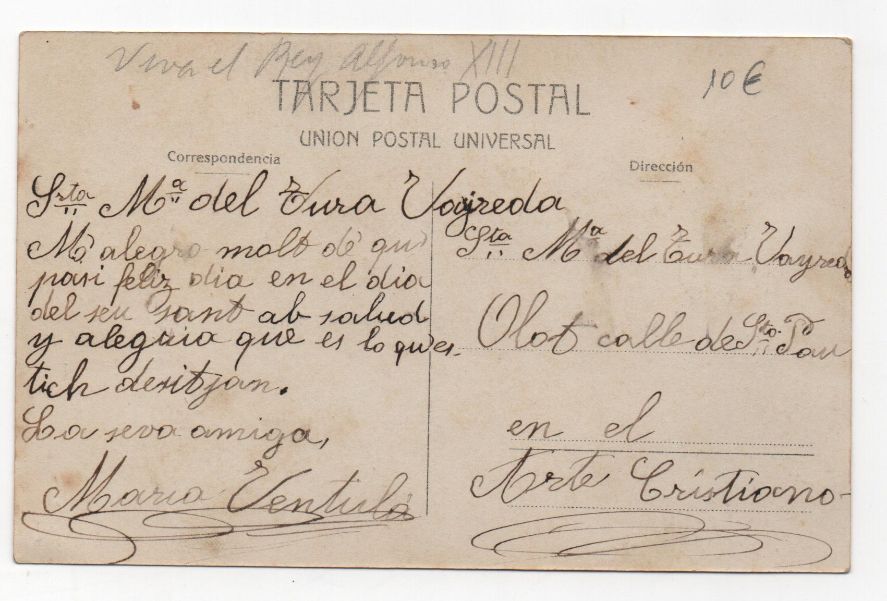 Viva el Rey Alfonso XIII
10€
TARJETA POSTAL
UNION POSTAL UNIVERSAL
Correspondencia
Srta Mª del Tura Vayreda
M'alegro molt de qui
pasi feliz dia en el dia
del seu sant ab salud
y alegaia que es lo que es-
tich desitjan.
La seva amiga,
Maria Ventulá
Dirección
Sta Mª del Tura Vayreda
Olot calle de Sto. Pau
en el
Arte Cristiano-